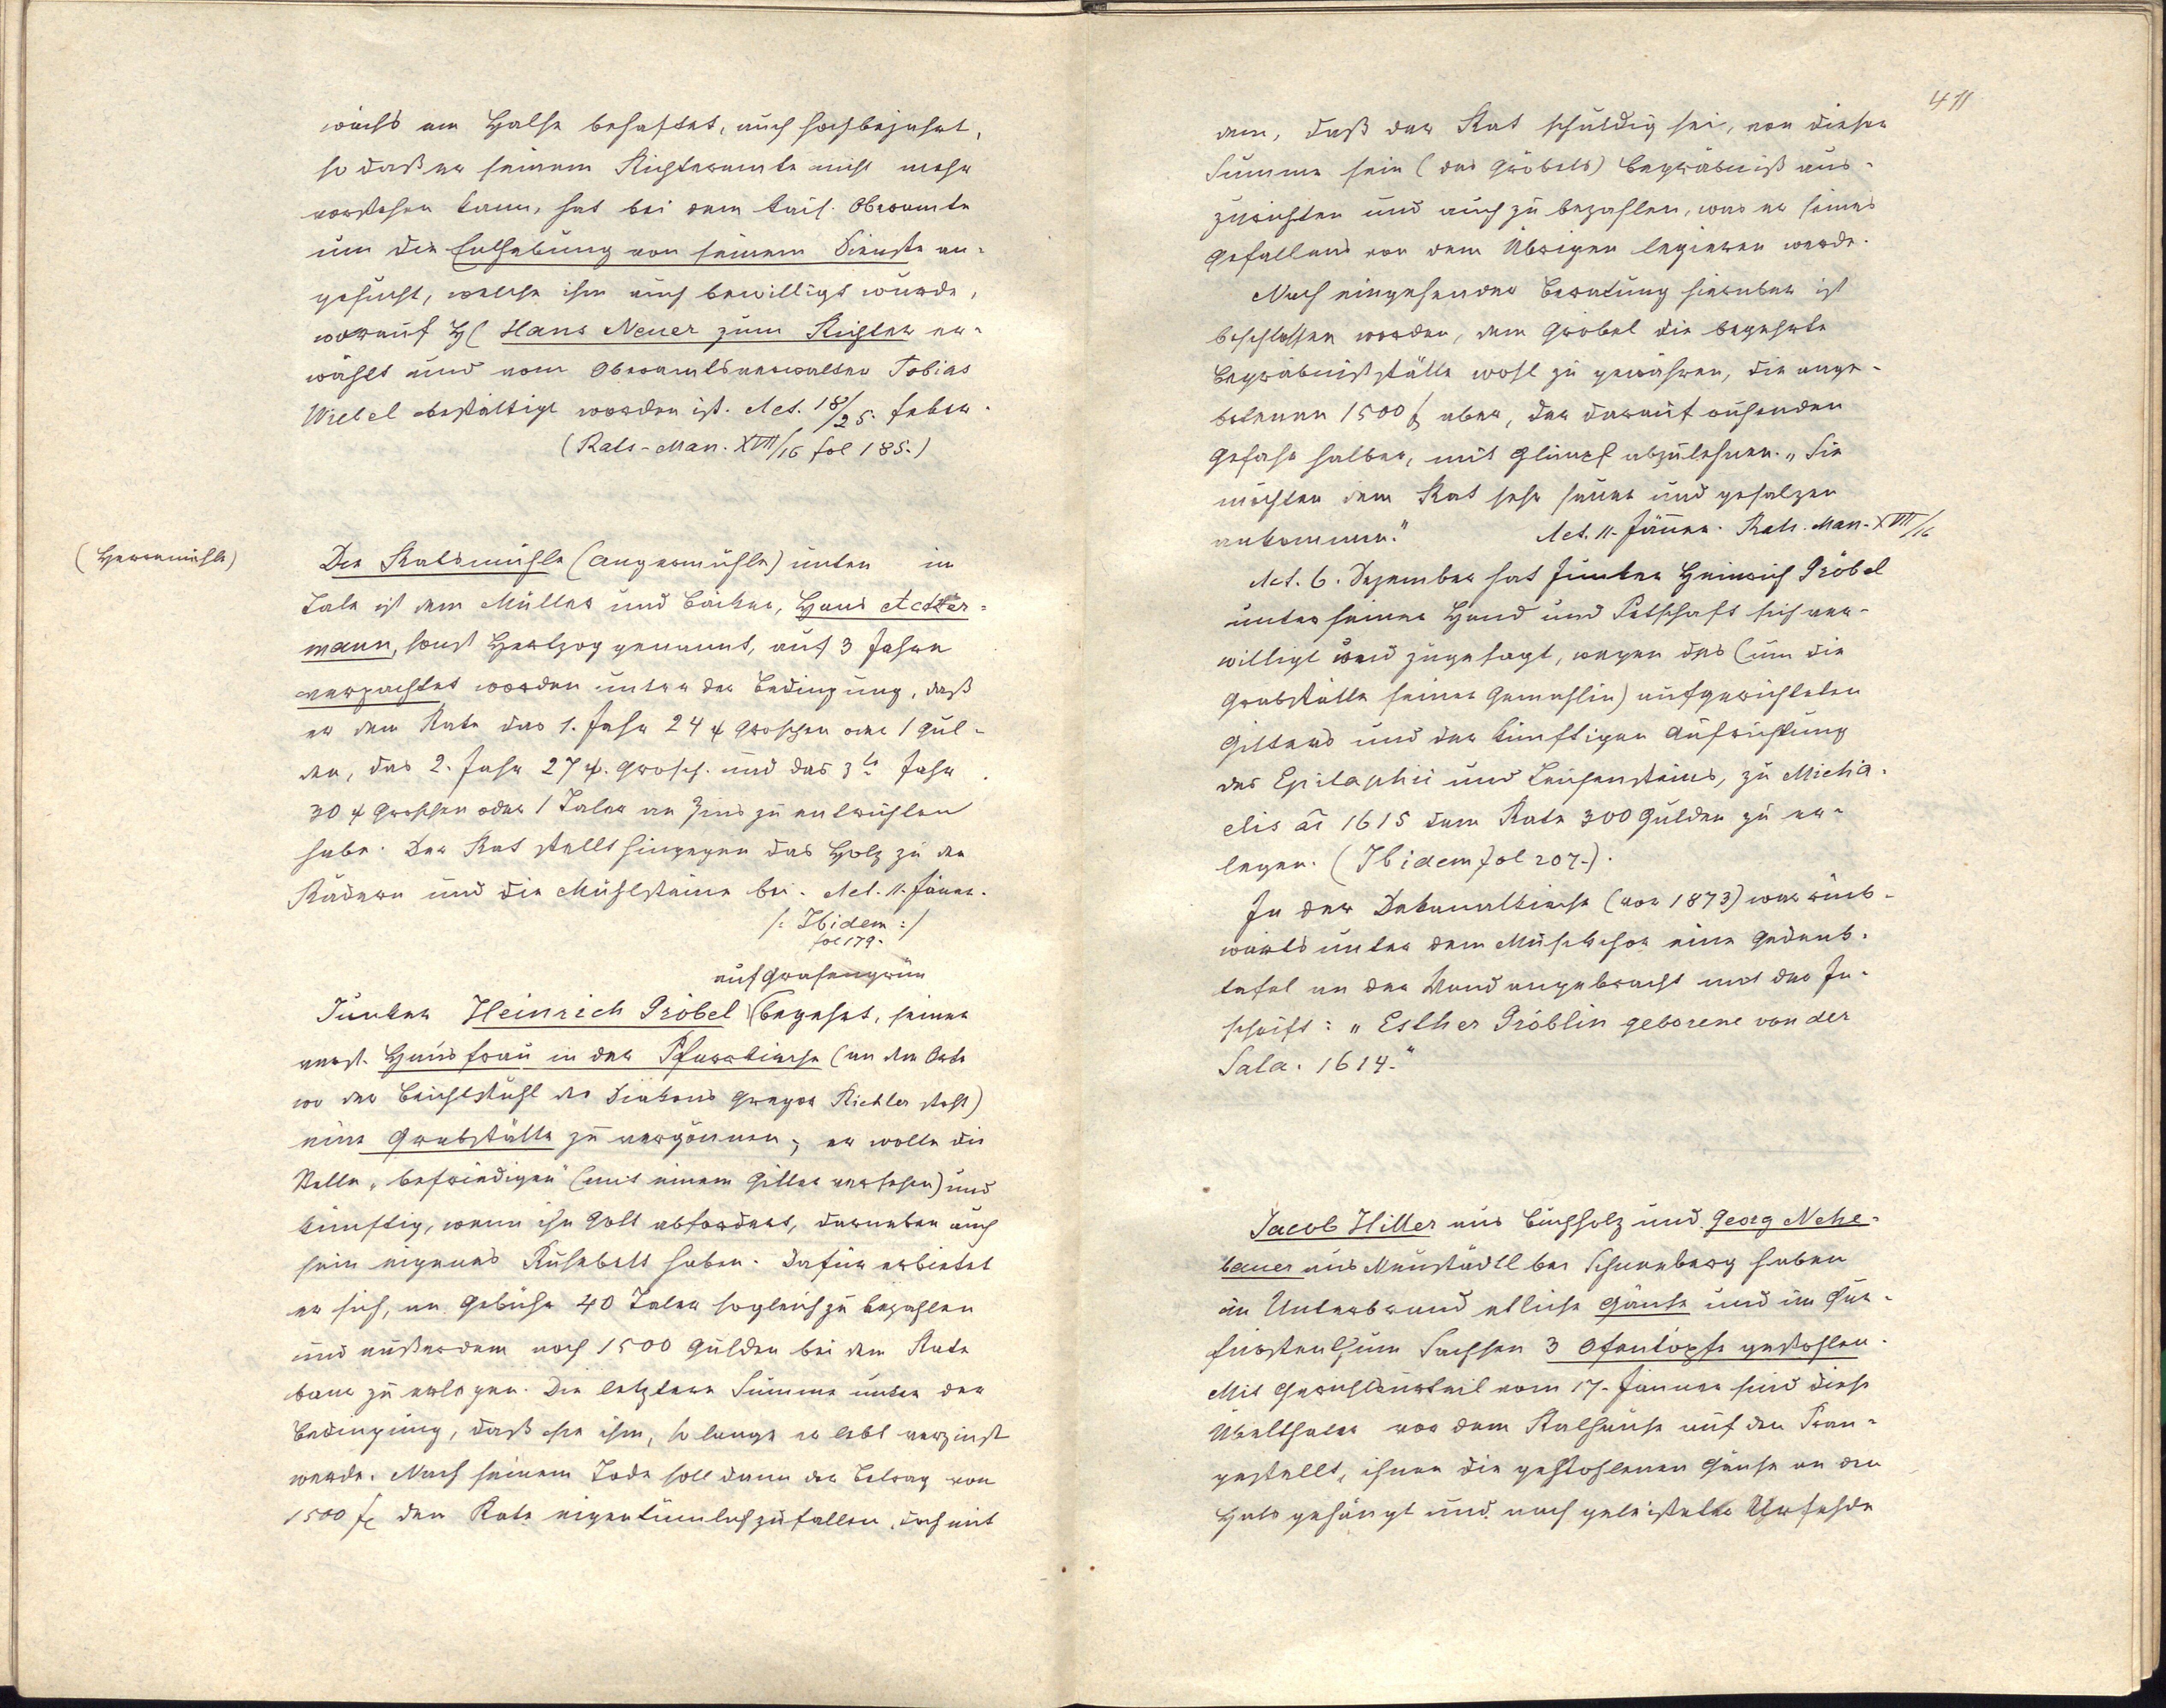 wuchs am Halse behaftet, auch hochbejahrt,
so daß er seinem Richteramte nicht mehr
vorstehen kann, hat bei dem kais. Oberamte
um die Enthebung von seinem Dienste an-
gesucht, welche ihm auch bewilligt wurde,
worauf H( Hans Neuer zum Richter er-
wählt und vom Oberamtsverwalter Tobias
Wiebel bestättigt worden ist. Act. 18/25. feber.
(Rats-Man. XVII/16 fol 185.)
(Herrnmühle)
Die Ratsmühle (Angermühle) unten in
Tale ist dem Müller und Bäcker, Hans Acker-
mann, sonst Hertzog genannt, auf 3 Jahre
verpachtet worden unter der Bedingung, daß
er dem Rate das 1. Jahr 24 Groschen oder 1 Gul-
den, das 2. Jahr 27 Grosch. und das 3te Jahr
30 Groschen oder 1 Taler an Zins zu entrichten
habe. Der Rat stellt hingegen das Holz zu den
Rädern und die Mühlsteine bei. Act. 11. Jäner.
/: Ibidem :/
fol 179.
auf Grafengrün
Junker Heinrich Gröbel (begehrt, seiner
verst. Hausfrau in der Pfarrkirche (an dem Orte
wo der Beichtstuhl des Diakons Gregor Richter steht)
eine Grabstätte zu vergönnen; er wolle die
Stelle „befriedigen" (mit einem Gitter versehen) und
künftig, wenn ihn Gott abfordert, darneben auch
sein eigenes Ruhebett haben. Dafür erbietet
er sich, an Gebühr 40 Taler sogleich zu bezahlen
und außerdem noch 1500 Gulden bei dem Rate
baar zu erlegen. Die letztere Summe unter der
Bedingung, daß sie ihm, so lange er lebt verzinst
werde. Nach seinem Tode soll dann der Betrag von
1500 f. dem Rate eigentümlich zufallen, doch mit
411
dem, daß der Rat schuldig sei, von dieser
Summe sein (des Gröbels) Begräbniß aus-
zurichten und auch zu bezahlen, was er seines
Gefallens von dem Übrigen legieren werde.
Nach eingehender Beratung hierüber ist
beschlossen worden, dem Gröbel die begehrte
Begräbnißstätte wohl zu gewähren, die ange-
botenen 1500 f. aber, der darauf ruhenden
Gefahr halber, mit Glimpf abzulehnen. „Sie
möchten dem Rat sehr sauer und gesalzen
ankommen." Act. 11. Jänner. Rats. Man. XVII/16
Act. 6. Dezember hat Junker Heinrich Gröbel
unter seiner Hand und Petschaft sich ver-
willigt und zugesagt, wegen des (um die
Grabstätte seiner Gemahlin) aufgerichteten
Gitters und der künftigen Aufrichtung
des Epitaphii und Leichensteins, zu Micha-
elis ao 1615 dem Rate 300 Gulden zu er-
legen. (Ibidem fol 207.).
In der Dekanalkirche (vor 1873) war rück-
wärts unter dem Musikchor eine Gedenk-
tafel an der Wand angebracht mit der In-
schrift: „Esther Gröblin geborene von der
Sala. 1614."
Jacob Hiller aus Buchholz und Georg Nehe-
bauer aus Neustädtl bei Schneeberg haben
in Unterbrand etliche Gänse und im Kur-
fürstenthum Sachsen 3 Ofentöpfe gestohlen.
Mit Gerichtsurteil vom 17. Jänner sind diese
Übelthäter vor dem Rathause auf den Pran-
gestellt, ihnen die gestohlenen Gänse an den
Hals gehängt und nach geleisteter Urfehde